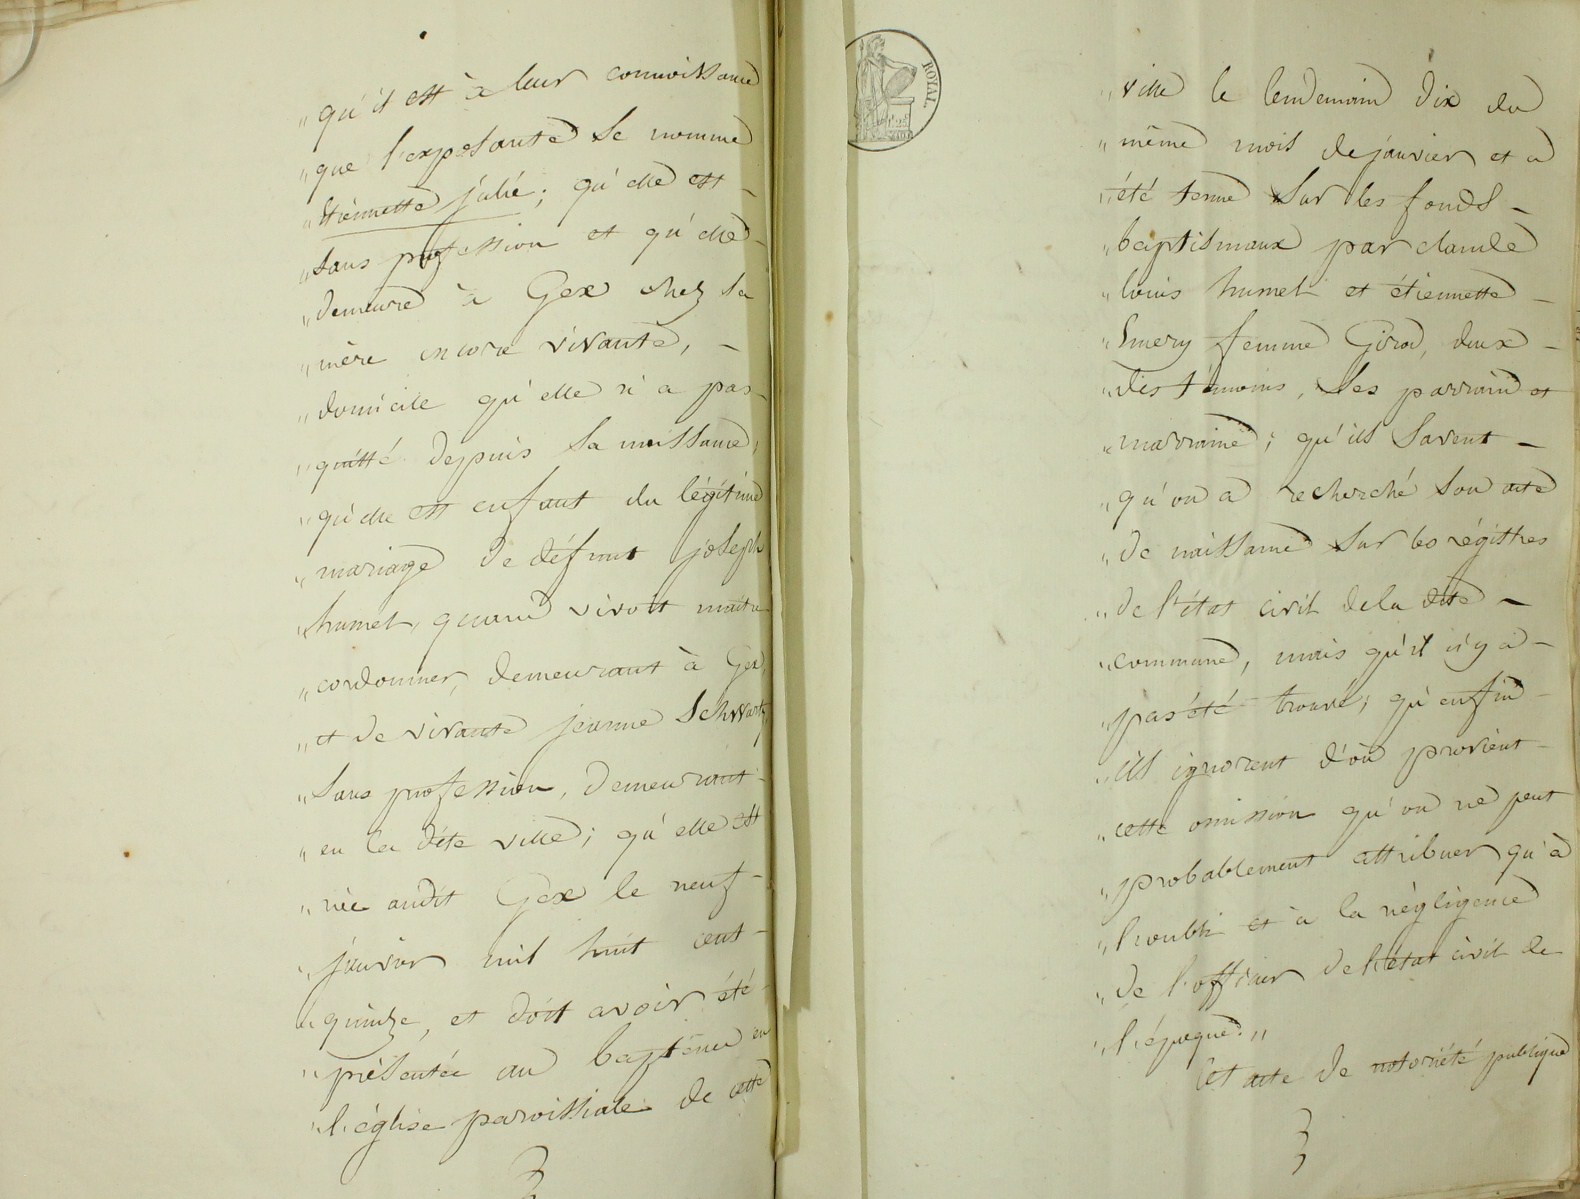 „ qu'il est à leur connoissance
„ que l'exposante se nomme
„ Etiennette julie; qu'elle est -
„ sans profession et qu'elle -
„ demeure à Gex chez sa
„ mère encore vivante, -
„ domicile qu'elle n'a pas -
„ quitté depuis sa naissance;
„ qu'elle est enfant du légitime
„ mariage de défunt joseph
„ humel, quand vivoit maître
„ cordonnier, demeurant à Gex,
„ et de vivante jeanne Schwartz
„ sans profession, demeurant -
„ en la dite ville; qu'elle est
„ née audit Gex le neuf -
„ janvier mil huit cent -
„ quinze, et doit avoir été -
„ présentée au baptême en
„ l'église paroissiale de cette
ROYAL.
„ ville le lendemain dix du
„ même mois de janvier et a
„ été tenue sur les fonds -
„ baptismaux par claude
„ louis humel et étiennette -
„ Emery femme Girod, deux -
„ des témoins, ses parrain et
„ marraine; qu'ils savent -
„ qu'on a recherché son acte
„ de naissance sur les régistres
„ de l'état civil de la dite -
„ commune, mais qu'il n'y a -
„ pas été trouvé; qu'enfin -
„ ils ignorent d'où provient -
„ cette omission qu'on ne peut
„ probablement attribuer qu'à
„ l'oubli et à la négligence
„ de l'officier de l'état civil de
„ l'époque. „
Cet acte de notoriété publique